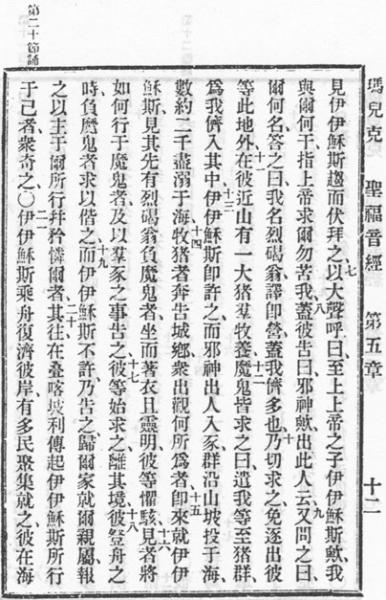 瑪兒克 聖福音經 第五章 十二
見伊伊穌斯趨而伏拜之七以大聲呼曰至上上帝之子伊伊穌斯歟我
與爾何干指上帝求爾勿苦我八蓋彼告曰邪神歟出此人云九又問之曰
爾何名答之曰我名烈碣翁譯即營蓋我儕多也十乃切求之免逐出彼
等此地外十一在彼近山有一大猪羣牧養十二魔鬼皆求之曰遣我等至猪群
為我儕入其中十三伊伊穌斯即許之而邪神出人入豕群沿山坡投于海
數約二千盡溺于海十四牧猪者奔告城鄉衆出觀何所為者十五即來就伊伊
穌斯見其先有烈碣翁負魔鬼者坐而著衣且靈明彼等懼駭十六見者將
如何行于魔鬼者及以羣豕之事告之十七彼等始求之離其境十八彼登舟之
時負魔鬼者求以偕之十九而伊伊穌斯不許乃告之歸爾家就爾親屬報
之以主于爾所行并矜憐爾者二十其往在疊喀坡利傳起伊伊穌斯所行
于己者衆奇之○伊伊穌斯乘舟復濟彼岸有多民聚集就之彼在海
第二十節誦